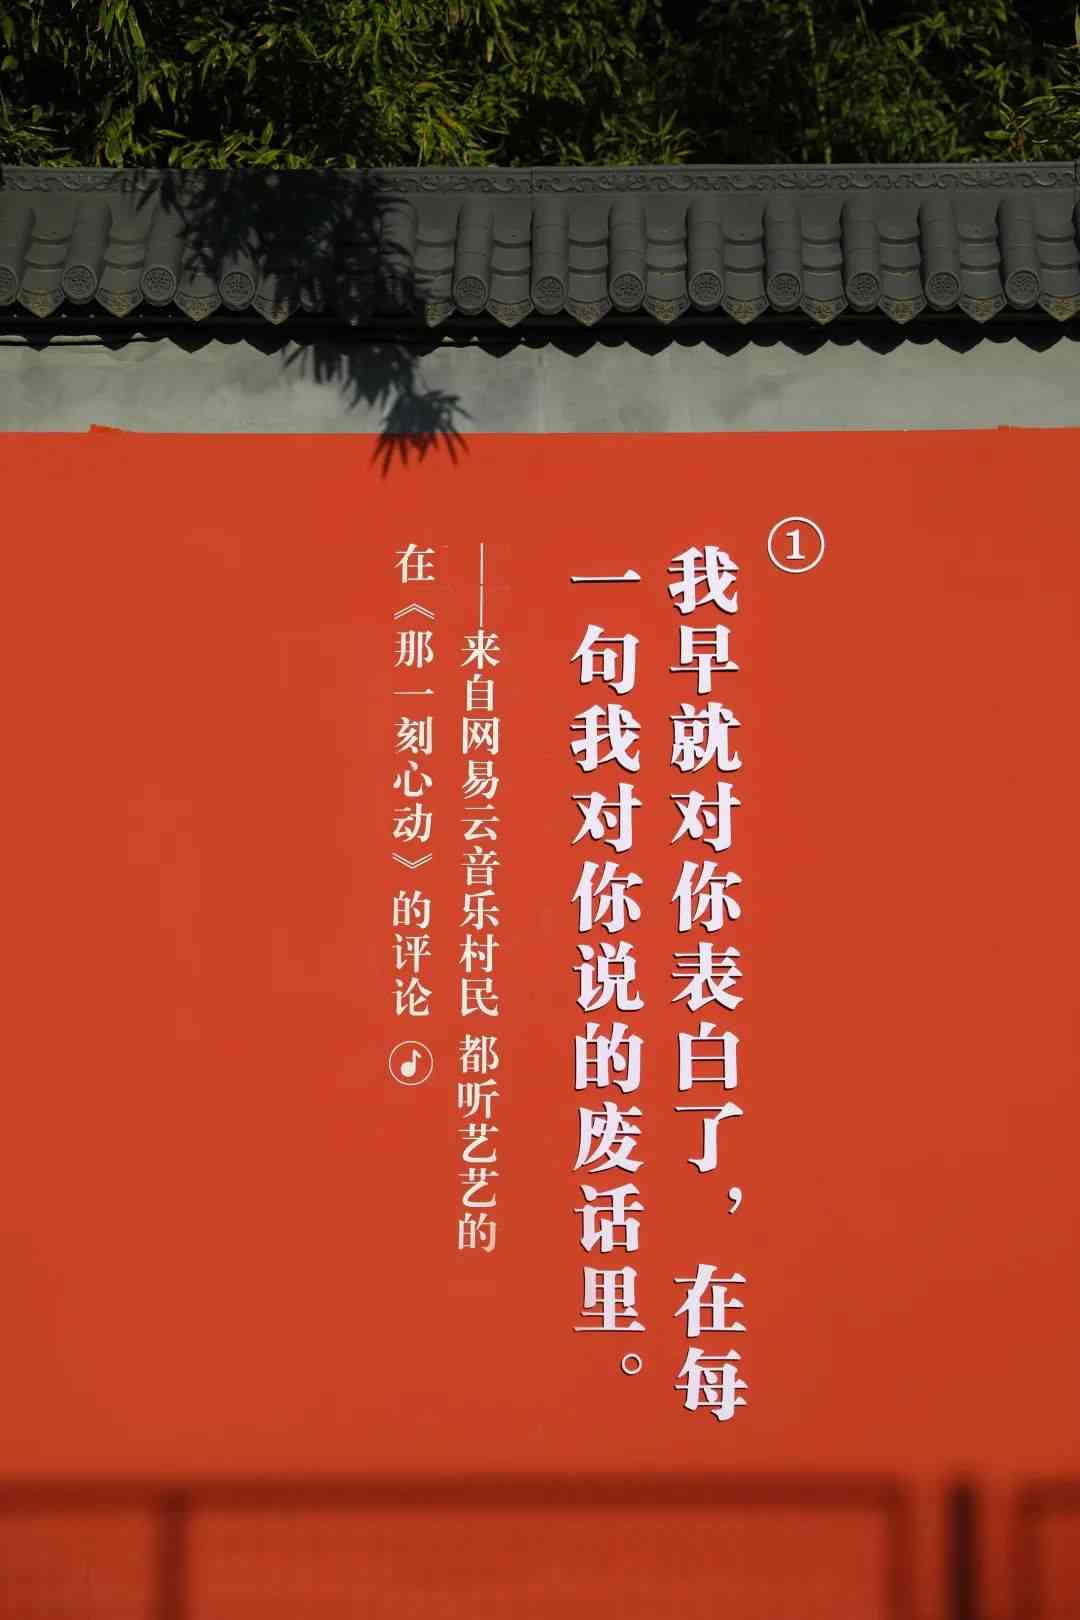 ①
我早就对你表白了，在每
一句我对你说的废话里。
——来自网易云音乐村民 都听艺艺的
在《那一刻心动》的评论